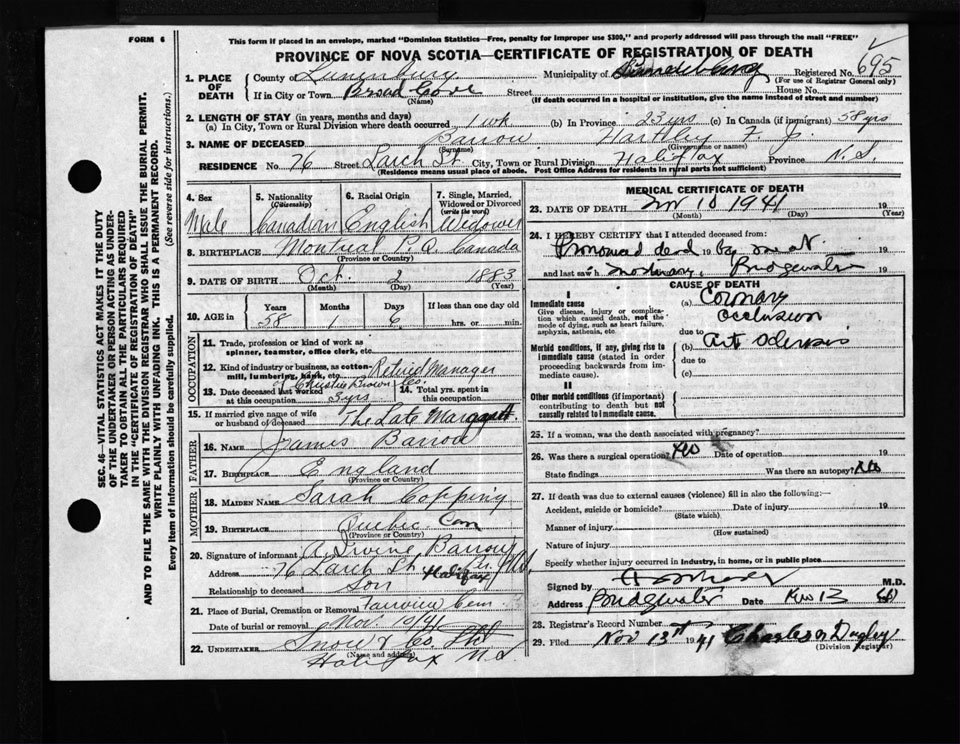 FORM 6
This form if placed in an envelope, marked "Dominion Statistics—Free, penalty for improper use $300," and properly addressed will pass through the mail "FREE"
PROVINCE OF NOVA SCOTIA—CERTIFICATE OF REGISTRATION OF DEATH
1. PLACE OF DEATH
County of Lunenburg Municipality of Registered No. 695
(For use of Registrar General only)
If in City or Town Broad Cove Street House No.
(Name) (If death occurred in a hospital or institution, give the name instead of street and number)
2. LENGTH OF STAY (in years, months and days)
(a) In City, Town or Rural Division where death occurred 1 wk (b) In Province 23 yrs (c) In Canada (if immigrant) 58 yrs
3. NAME OF DECEASED Barrow Hartley F. J.
(Surname) (Given name or names)
RESIDENCE No. 76 Street Larch St. City, Town or Rural Division Halifax Province N.S.
(Residence means usual place of abode. Post Office Address for residents in rural parts not sufficient)
4. Sex
Male
5. Nationality
(Citizenship)
Canadian
6. Racial Origin
English
7. Single, Married, Widowed or Divorced
(write the word)
Widower
8. BIRTHPLACE Montreal P.Q. Canada
(Province or Country)
9. DATE OF BIRTH Oct. 2 1883
(Month) (Day) (Year)
10. AGE in
Years Months Days If less than one day old
58 1 hrs. or min.
OCCUPATION
11. Trade, profession or kind of work as spinner, teamster, office clerk, etc.
12. Kind of industry or business, as cotton mill, lumbering, bank, etc. Retired Manager
of Christie Brown Co.
13. Date deceased last worked at this occupation 3 yrs
14. Total yrs. spent in this occupation
15. If married give name of wife or husband of deceased The Late Margaret.
FATHER
16. NAME James Barrow
17. BIRTHPLACE England
(Province or Country)
MOTHER
18. MAIDEN NAME Sarah Copping
19. BIRTHPLACE Quebec Can
(Province or Country)
20. Signature of informant A. Irvine Barrow
Address 76 Larch St. Halifax N.S.
Relationship to deceased Son
21. Place of Burial, Cremation or Removal Fairview Cem
Date of burial or removal Nov. 10/41
22. UNDERTAKER Snow & Co. Ltd
(Name and address)
Halifax N.S.
MEDICAL CERTIFICATE OF DEATH
23. DATE OF DEATH Nov 10 1941 19
(Month) (Day)
24. I HEREBY CERTIFY that I attended deceased from:
Pronounced dead 19 by me at 19
and last saw h Bridgewater 19
CAUSE OF DEATH
I
Immediate cause
Give disease, injury or complication which caused death, not the mode of dying, such as heart failure, asphyxia, asthenia, etc.
(a) Coronary occlusion
due to
Morbid conditions, if any, giving rise to immediate cause (stated in order proceeding backwards from immediate cause).
(b) Art sclerosis
due to
(c)
II
Other morbid conditions (if important) contributing to death but not causally related to immediate cause.
25. If a woman, was the death associated with pregnancy?
26. Was there a surgical operation? No Date of operation 19
State findings Was there an autopsy? No
27. If death was due to external causes (violence) fill in also the following:—
Accident, suicide or homicide? Date of injury 19
(State which)
Manner of injury
(How sustained)
Nature of injury
Specify whether injury occurred in Industry, in home, or in public place
Signed by M.D.
Address Bridgewater Date Nov 13
28. Registrar's Record Number
29. Filed Nov 13th 1941 Charles Dagley
(Division Registrar)
SEC. 46—VITAL STATISTICS ACT MAKES IT THE DUTY OF THE UNDERTAKER OR PERSON ACTING AS UNDERTAKER TO OBTAIN ALL THE PARTICULARS REQUIRED IN THE "CERTIFICATE OF REGISTRATION OF DEATH" AND TO FILE THE SAME WITH THE DIVISION REGISTRAR WHO SHALL ISSUE THE BURIAL PERMIT.
WRITE PLAINLY WITH UNFADING INK. THIS IS A PERMANENT RECORD.
Every item of information should be carefully supplied. (See reverse side for instructions.)